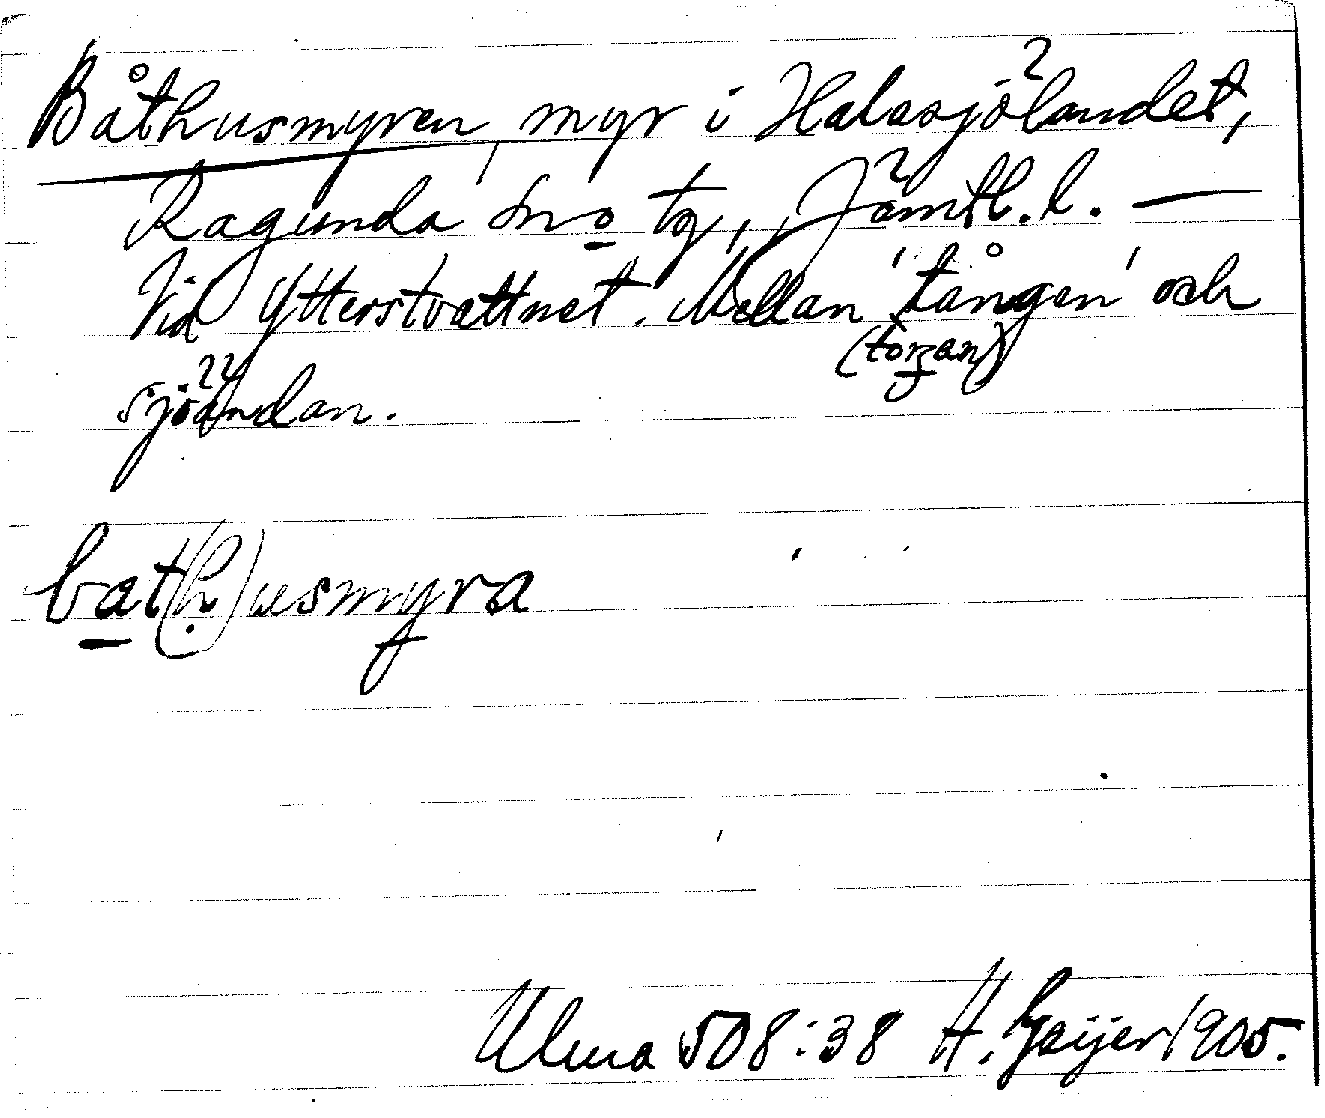 Båthusmyren, myr i Halasjölandet,
Ragunda sn o tg, Jämtl. l. —
Vid Ytterstvattnet. Mellan 'tången' och
(tɔŋan)
sjöändan.
bat(h)usmyra
Ulma 508:38 H. Geijer 1905.